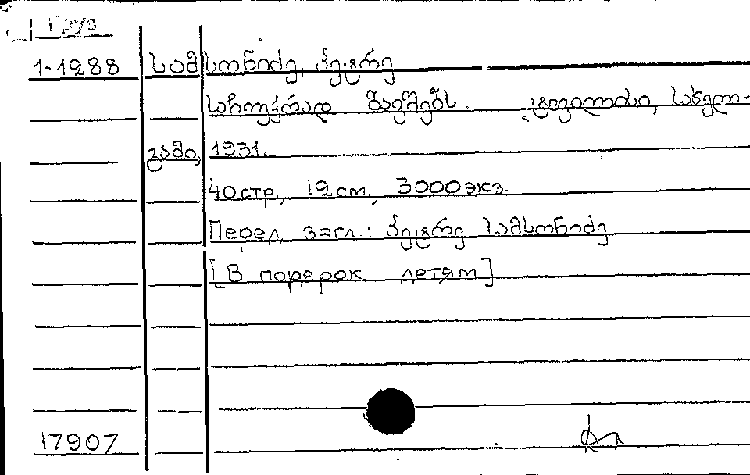 Груз
1-1288 სამსონიძე, პეტრე
საჩუქრად ბავშვებს. ტფილისი, სახელ-
გამი, 1931.
40 стр, 12 см, 3000 экз.
Перел. загл.: პეტრე სამსონიძე
[В подарок детям]
17907